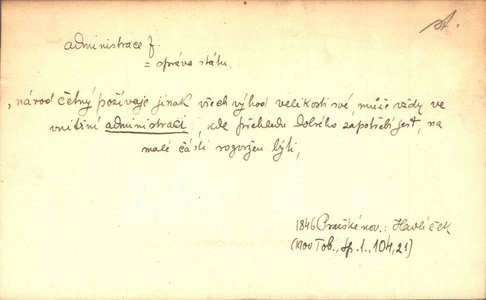 st.
administrace f.
= správa státu.
„národ četný požívaje jinak všech výhod velikosti své, může vždy ve
vnitřní administraci, kde přehledu dobrého zapotřebí jest, na
malé části rozvržen býti,
1846 Pražské nov.: Havlíček
(Nov Tob., Sp. 1., 104, 21)